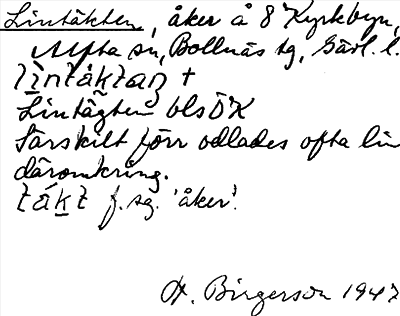 Lintäkten, åker å 8 Kyrkbyn,
Alfta sn, Bollnäs tg, Gävl. l.
lìntåktaŋ +
Lintägten blsÖK
Särskilt förr odlades ofta lin
däromkring.
tákt f. sg. 'åker'.
A. Birgerson 1947